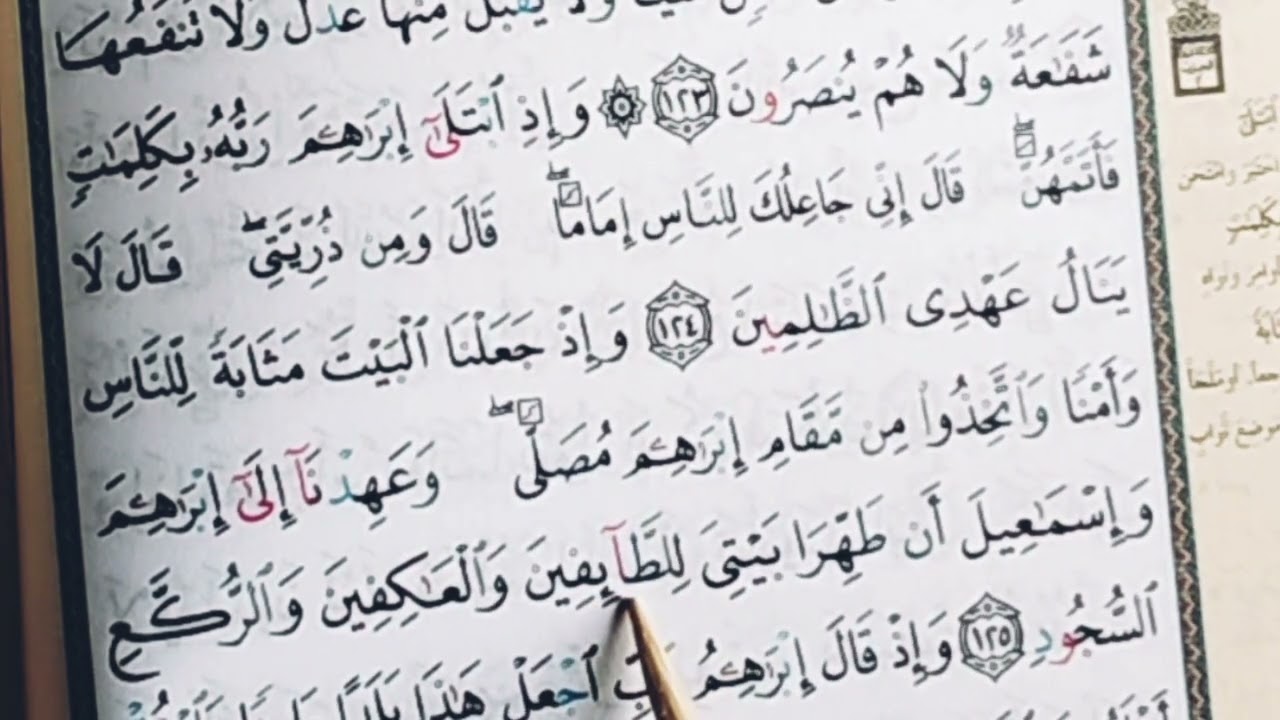 يُقْبَلُ مِنْهَا عَدْلٌ وَلَا تَنفَعُهَا
شَفَٰعَةٌ وَلَا هُمْ يُنصَرُونَ ١٢٣ ۞ وَإِذِ ٱبْتَلَىٰٓ إِبْرَٰهِـۧمَ رَبُّهُۥ بِكَلِمَٰتٍ
فَأَتَمَّهُنَّ ۖ قَالَ إِنِّى جَاعِلُكَ لِلنَّاسِ إِمَامًا ۖ قَالَ وَمِن ذُرِّيَّتِى ۖ قَالَ لَا
يَنَالُ عَهْدِى ٱلظَّٰلِمِينَ ١٢٤ وَإِذْ جَعَلْنَا ٱلْبَيْتَ مَثَابَةً لِّلنَّاسِ
وَأَمْنًا وَٱتَّخِذُوا۟ مِن مَّقَامِ إِبْرَٰهِـۧمَ مُصَلًّى ۖ وَعَهِدْنَآ إِلَىٰٓ إِبْرَٰهِـۧمَ
وَإِسْمَٰعِيلَ أَن طَهِّرَا بَيْتِىَ لِلطَّآئِفِينَ وَٱلْعَٰكِفِينَ وَٱلرُّكَّعِ
ٱلسُّجُودِ ١٢٥ وَإِذْ قَالَ إِبْرَٰهِـۧمُ ٱجْعَلْ هَٰذَا
ٱبْتَلَىٰ
اختبر وامتحن
بِكَلِمَٰتٍ